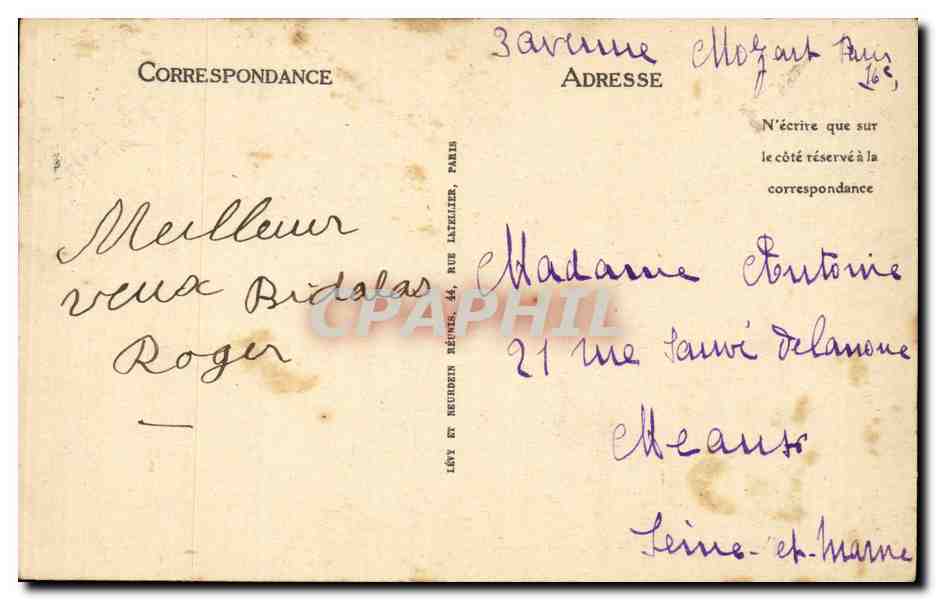 3 avenue Mozart Paris
16e
CORRESPONDANCE
ADRESSE
N'écrire que sur
le côté réservé à la
correspondance
Meilleur
veux Bidalas
Roger
LÉVY ET NEURDEIN RÉUNIS, 44, RUE LETELLIER, PARIS
CPAPHIL
Madame Antoine
21 rue Sauvé Delanoue
Meaux
Seine-et-Marne